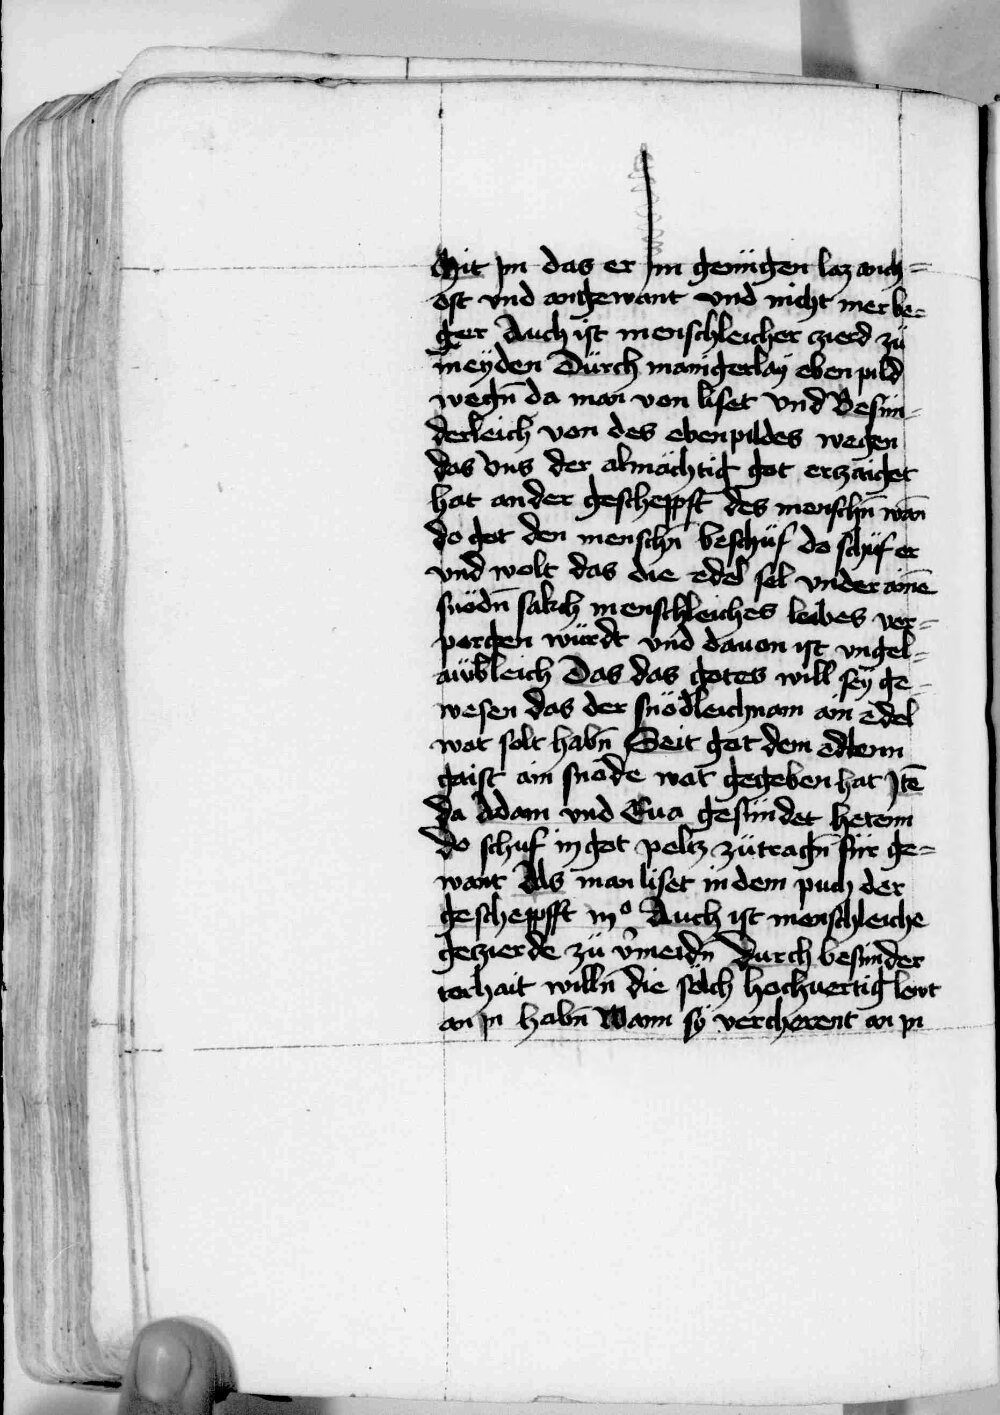 Mit jm das er jm genügen laz anch=
ost vnd angewant vnd nicht mer be=
ger Auch ist menschleicher zierd zü
meyden Dürch manigerlay eben pild
wegn̄ da man von liset vnd Besün=
derleich von des ebenpildes wegen
das vns der almächtig got erczaiget
hat an der gescheppft des menschn̄ wan̄
do got den menschn̄ beschüf do schüf er
vnd wolt das die edel sel vnder aine̅
snödn̄ sakch menschleiches leibes ver=
porgen würdt vnd dauon ist vngel=
aübleich Das das gotes will sey ge=
wesen das der snöd leichnam ain edel
wat solt habn̄ Seit got dem edlenn
gaist ain snöde wat gegeben hat Jte̅
da Adam vnd Eua gesündet hetenn
do schuf in got peltz zütragn̄ für ge=
want Als man liset in dem puch der
gescheppfft iijº Auch ist menschleiche
geczierde zü v̄meidn̄ Durch besunder
torhait willn̄ die sölch hochuertig lewt
an jn habn̄ Wann sy vercherent an jn